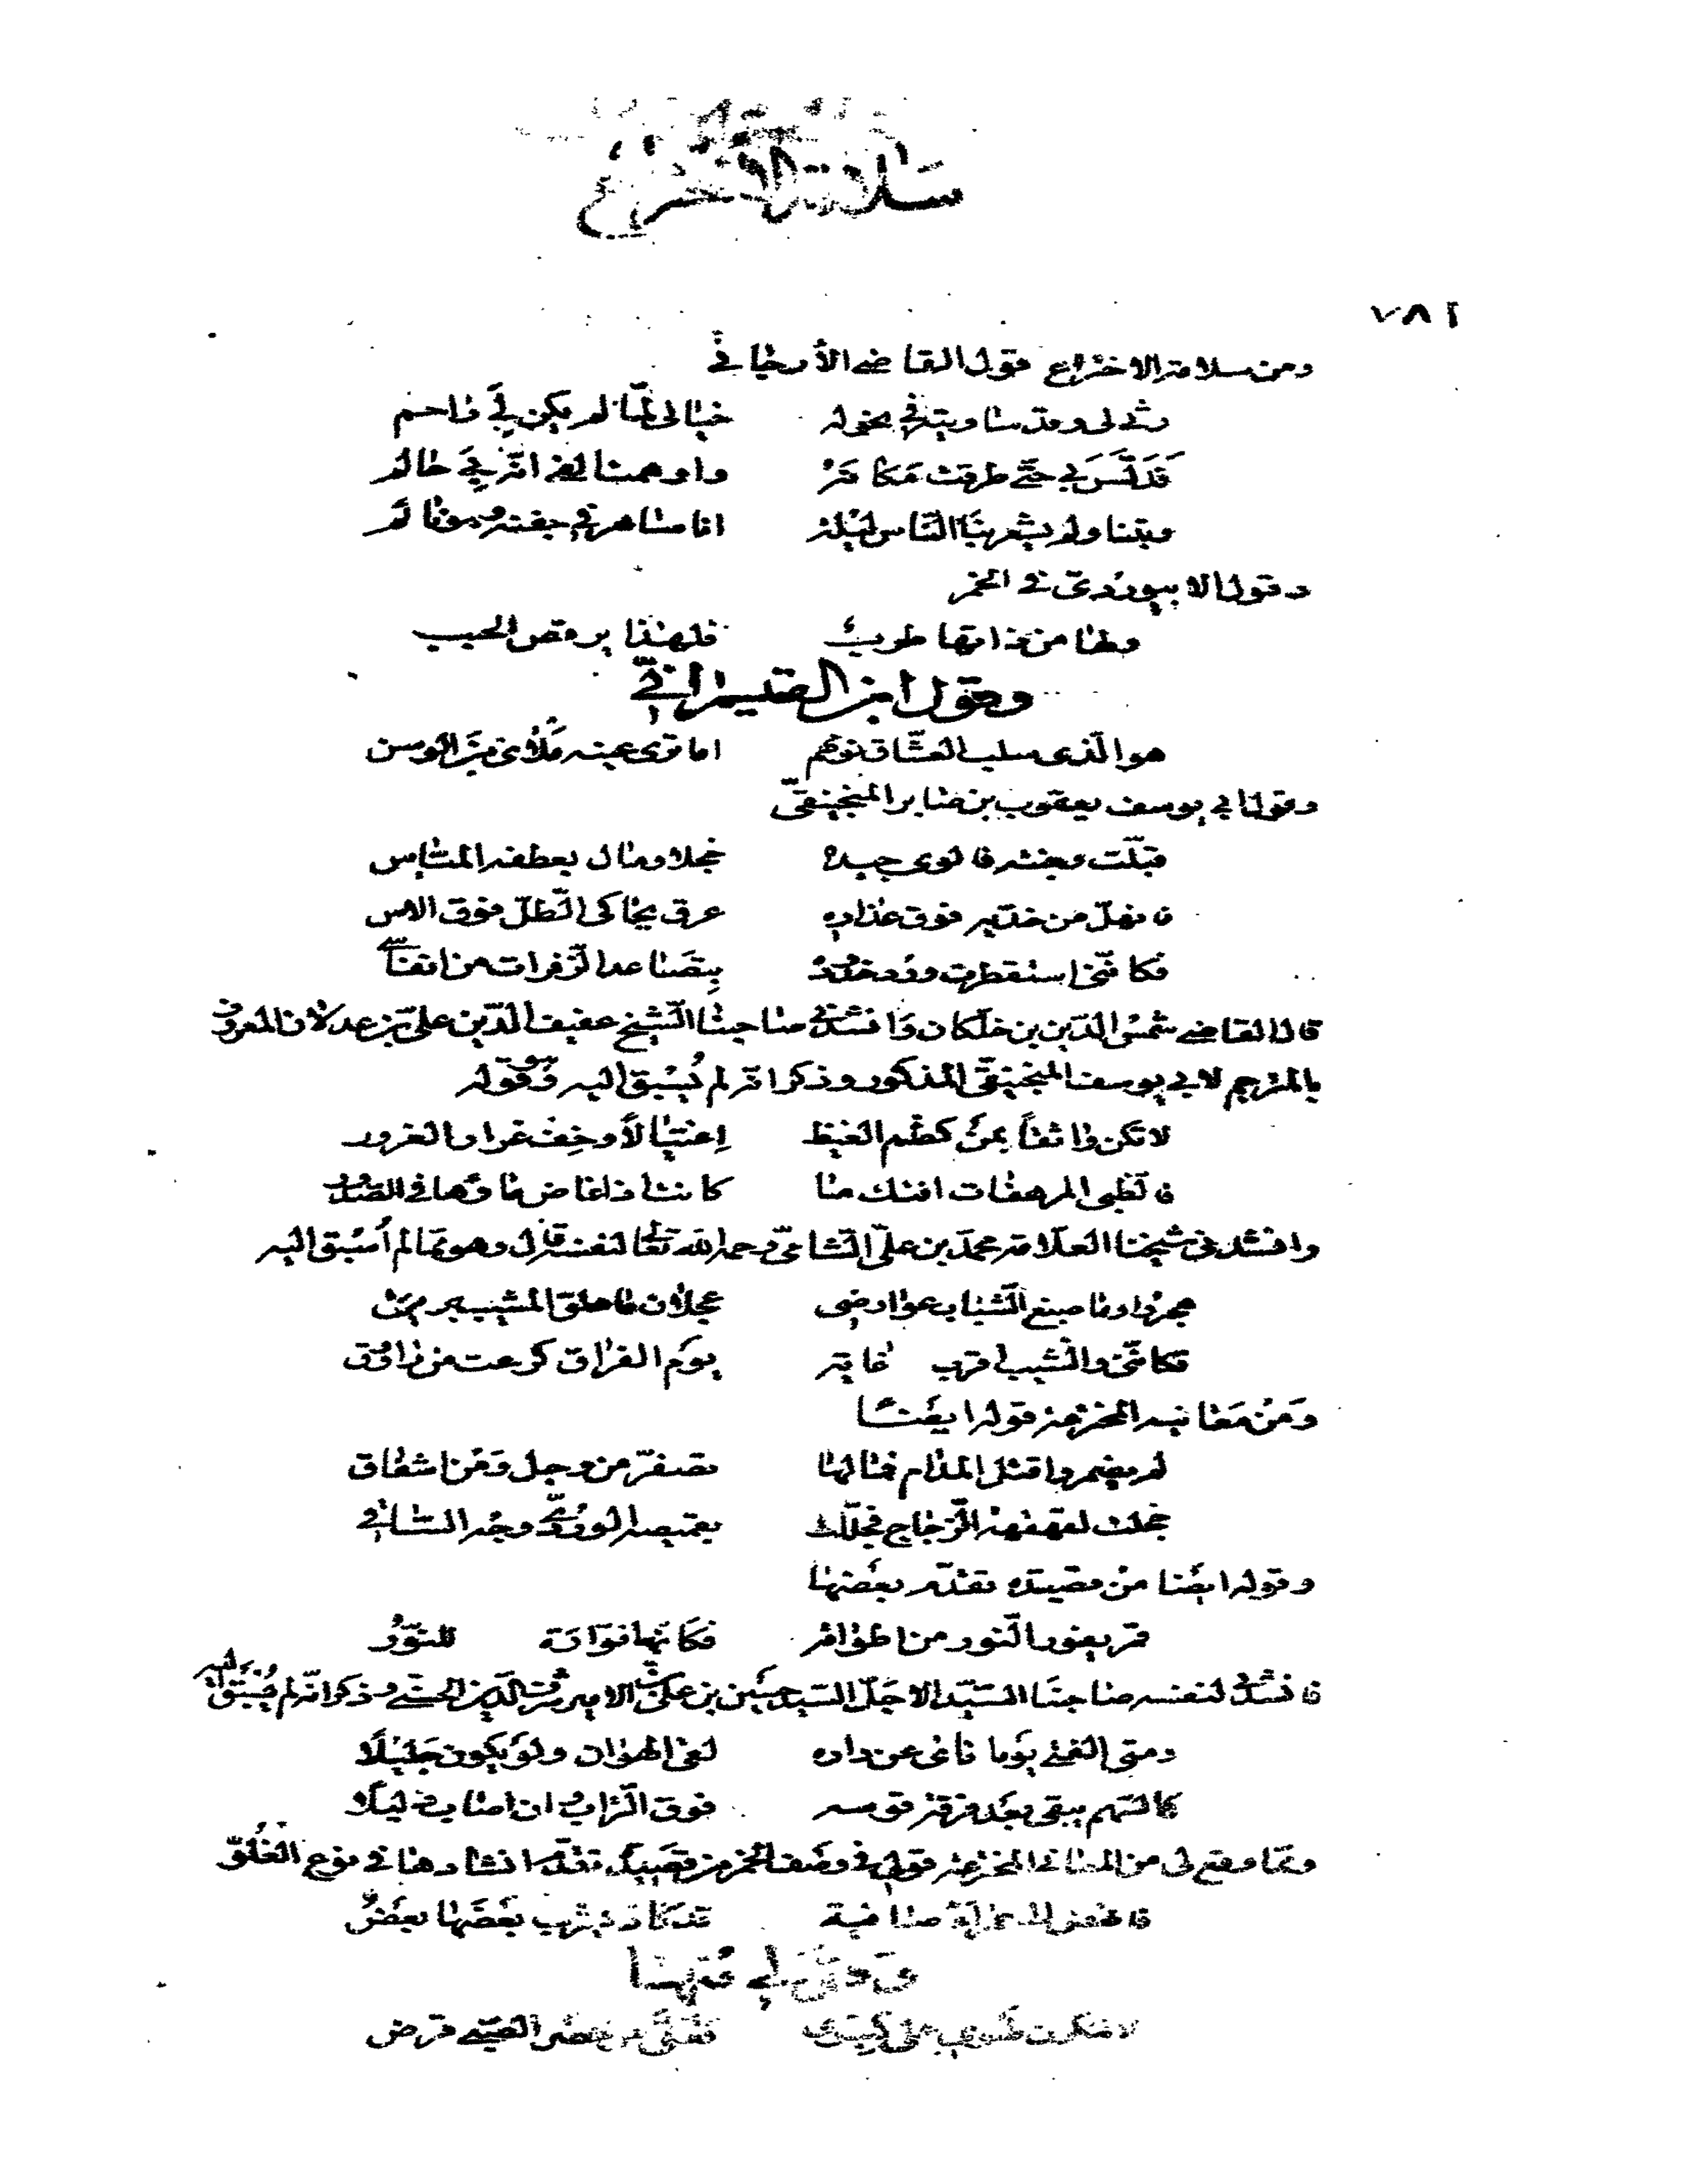 سلامة الاختراع
٧٨٢
ومن سلامة الاختراع قول القاضي الأرجاني
رثى لي وقد ساويته في نحوله خيالي لمّا لم يكن لي راحم
فدلّس بي حتّى طرقت مكانه واوهمت الفي انّه بي حالم
وبتنا ولم يشعر بنا النّاس ليلة انا ساهر في جفنه وهو نائم
وقول الابيوردى في الخمر
ولها من ذاتها طرب فلهذا يرقص الحبب
وقول ابن القيسراني
هو الّذي سلب العشّاق نومهم اما ترى عينه ملأى من الوسن
وقول ابي يوسف يعقوب بن صابر المنجنيقيّ
قبّلت وجنته فالوى جيده خجلا ومال بعطفه الميّاس
فانهلّ من خدّيه فوق عذاره عرق يحاكى الطّلّ فوق الاس
فكانّني استقطرت ورد خدوده بتصاعد الزّفرات من انفاسي
قال القاضي شمس الدّين بن خلّكان وانشدني صاحبنا الشّيخ عفيف الدّين علىّ بن عدلان المعروف
بالمترجم لابي يوسف المنجنيقيّ المذكور وذكر انّه لم يُسبق اليه وهو قوله
لا تكن واثقاً بمن كظم الغيظ اغتيالاً وخف غرار الغرور
فالظبى المرهفات افتك ما كانت اذا غاض ماؤها في الصّدور
وانشدنى شيخنا العلّامة محمّد بن علىّ الشّامىّ رحمه الله تعالى لنفسه قال وهو ممّا لم اُسبق اليه
هجروا وما صبغ الشّباب عوارضى عجلان ما علق المشيب بمفرقي
فكانّني والشيب اقرب غاية يوم الفراق كرعت من راووق
ومن معانيه المخترعة قوله ايضًا
لم يضمروا قتل المدام فما لها تصفرّ من وجل ومن اشفاق
خجلت لقهقهة الزّجاج فجلّلت بقميصه الوردىّ وجه السّاقي
وقوله ايضًا من قصيدة تقدّم بعضها
يفور النّور من اطرافه فكانّها فوّارة للنّور
فانشدني لنفسه صاحبنا السّيّد الاجلّ السّيّد حسين بن علىّ بن الامير شرف الدّين الحسني وذكر انّه لم يُسبق اليه
ومتى الفتى يوما نأى عن داره لقي الهوان ولو يكون جليلًا
كالسّهم يبقى بعد فرقة قوسه فوق التّراب وان اصاب ذليلًا
وممّا وقع لى من المعاني المخترعة قولي في وصف الخمر من قصيدة تقدّم انشادها في نوع الغلوّ
صافية قد كاد يشرب بعضها بعض
وقولي منها
لا تنكرت طربي على كبرى فعلىّ قرض